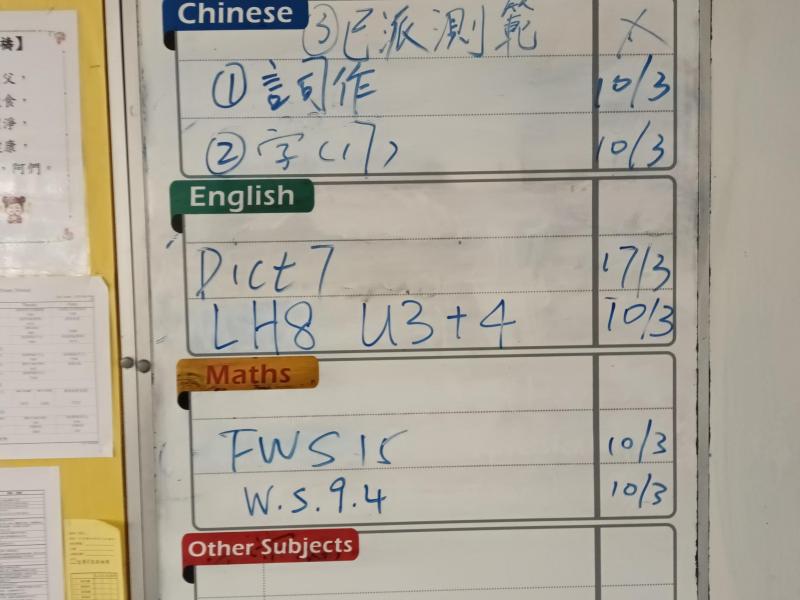 Chinese
③已派測範 X
①詞作 10/3
②字(17) 10/3
English
Dict 7 17/3
LH8 U3+4 10/3
Maths
FWS 15 10/3
W.S.9.4 10/3
Other Subjects
阿們。